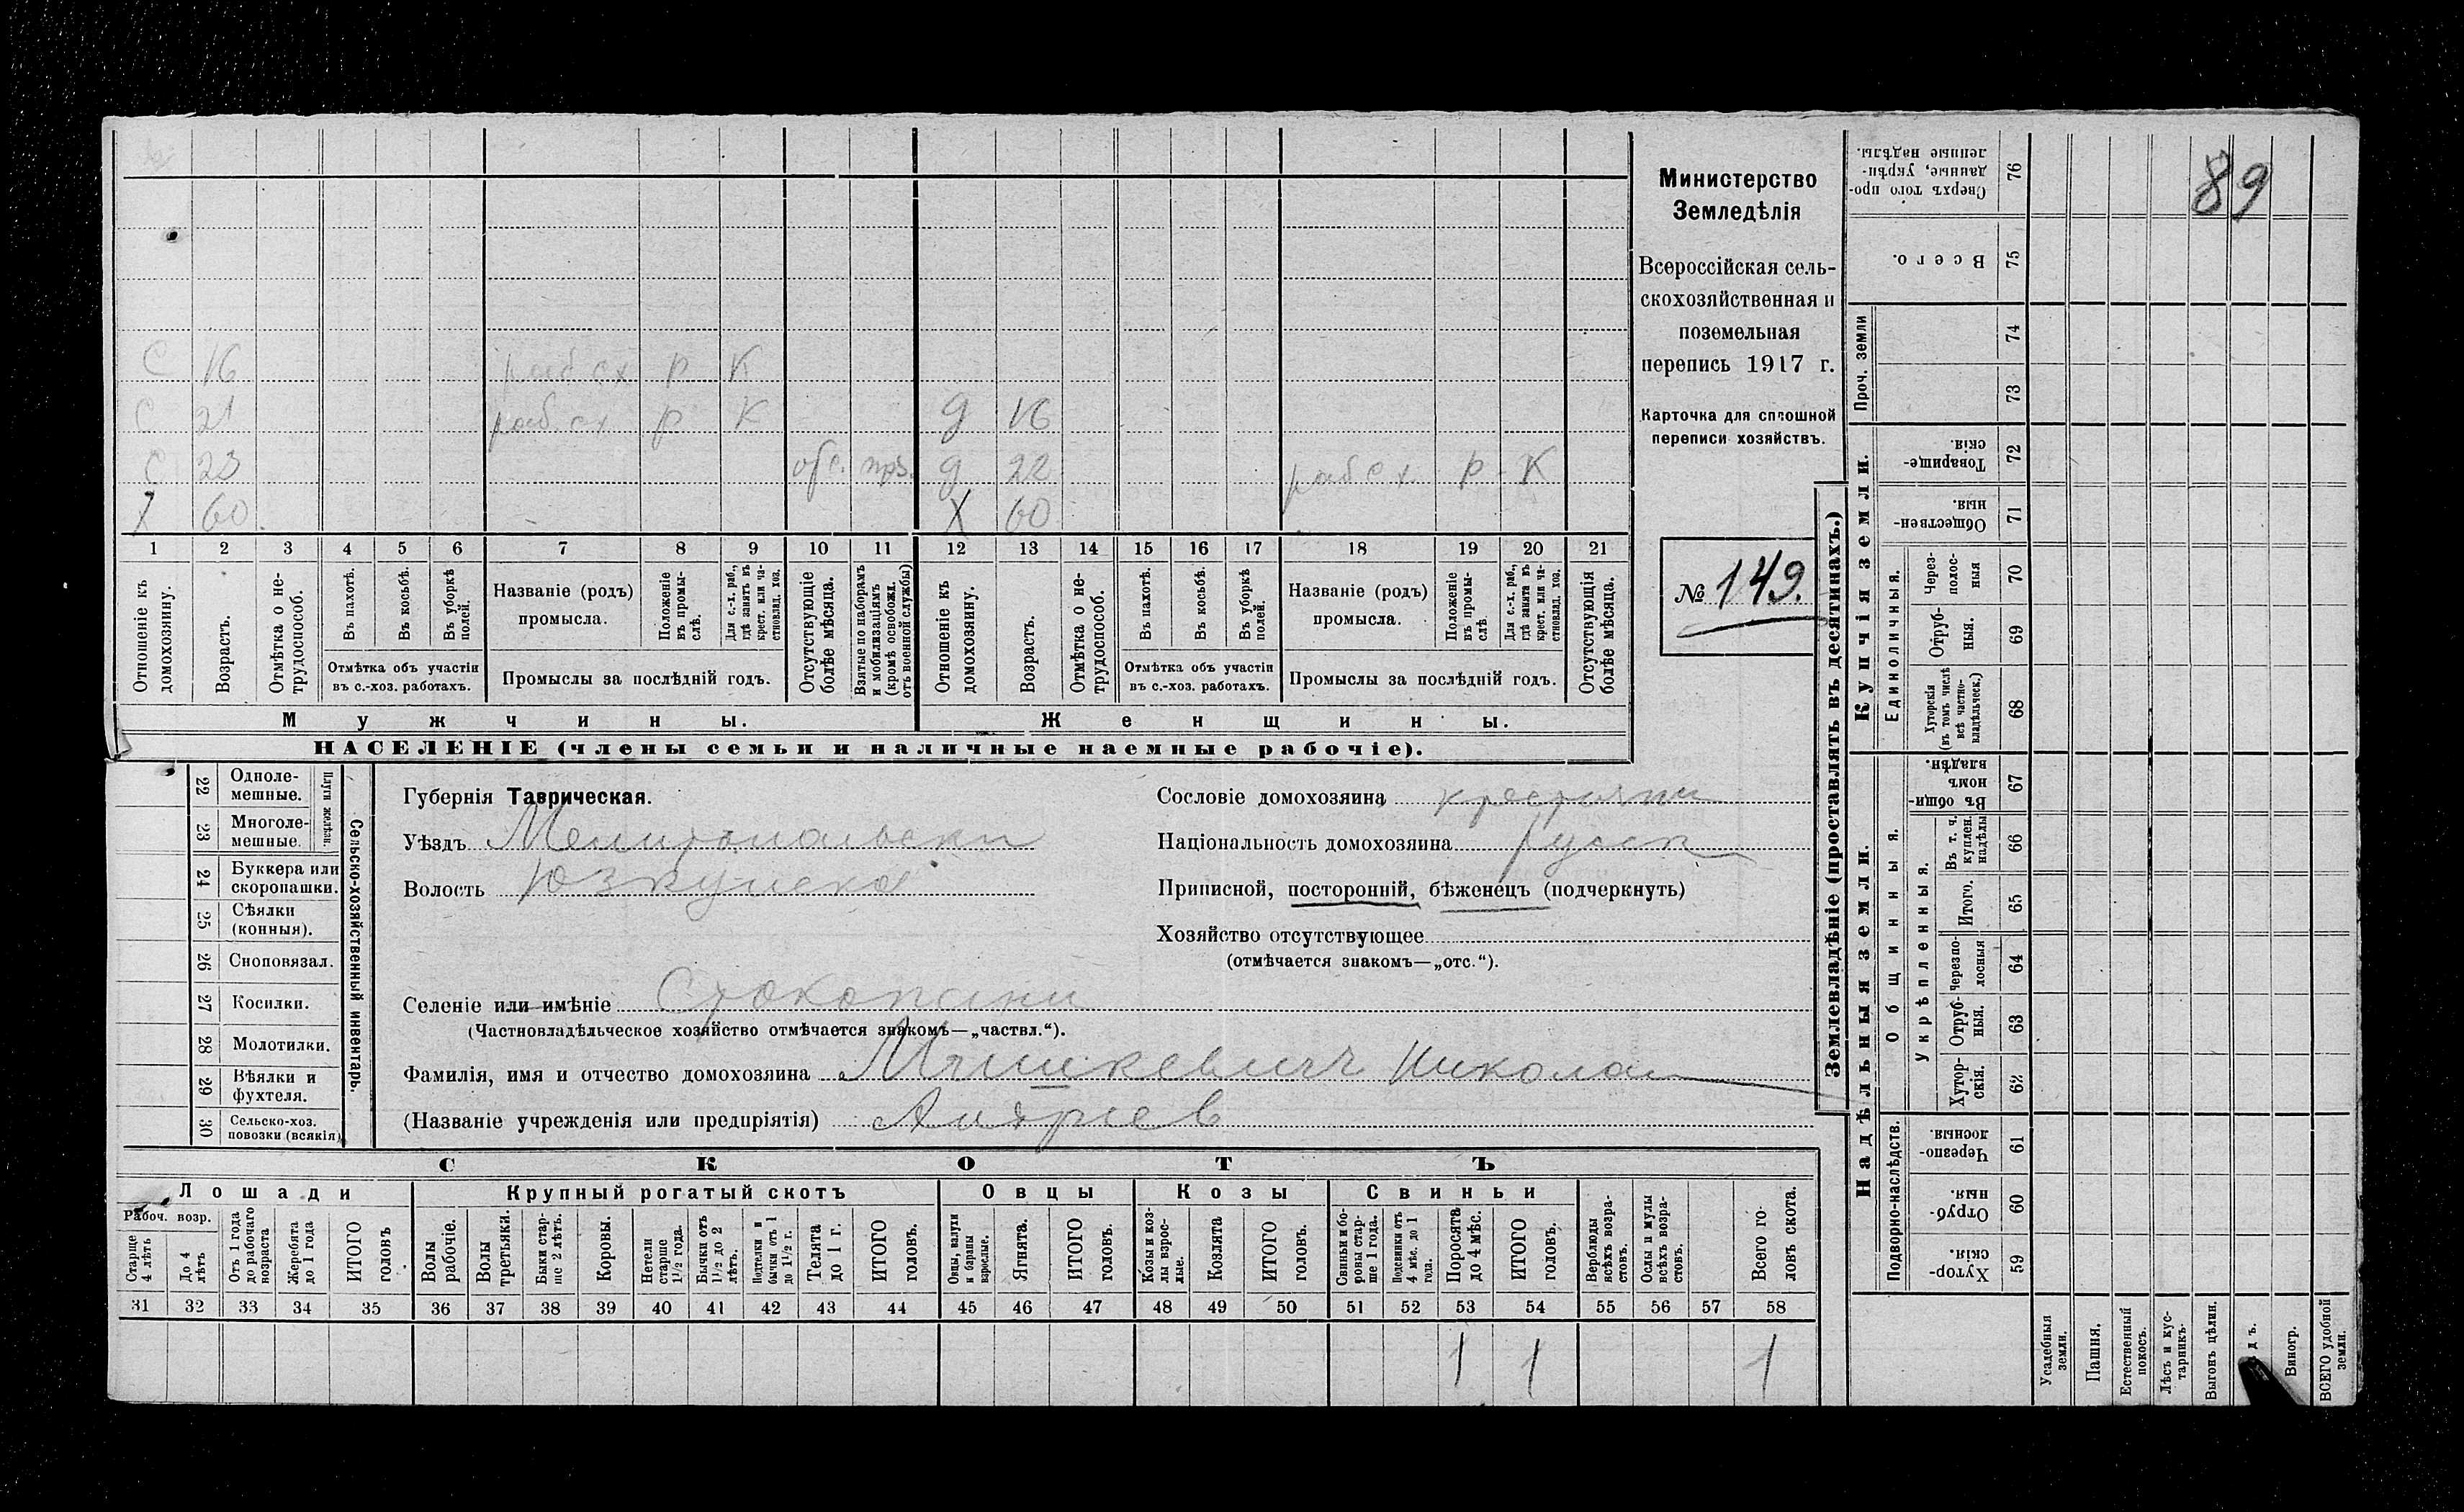 89
С 16 раб. сх Р К
С 21 раб. сх Р К Д 16
С 23 Д 22 раб с.х. Р К
Х 60 Х 60
1 2 3 4 5 6 7 8 9 10 11 12 13 14 15 16 17 18 19 20 21
Отношеніе къ домохозяину.
Возрастъ.
Отмѣтка о не-
трудоспособ.
Въ пахотѣ.
Въ косьбѣ.
Въ уборкѣ
полей.
Отмѣтка объ участіи
въ с.-хоз. работахъ.
Названіе (родъ)
промысла.
Положеніе
въ промы-
слѣ.
Для с.-х. раб.,
гдѣ занятъ въ
крест. или ча-
стновлад. хоз.
Промыслы за послѣдній годъ.
Отсутствующіе
болѣе мѣсяца.
Взятые по наборамъ
и мобилизаціямъ
(кромѣ освобожд.
отъ военной службы)
Отношеніе къ
домохозяину.
Возрастъ.
Отмѣтка о не-
трудоспособ.
Въ пахотѣ.
Въ косьбѣ.
Въ уборкѣ
полей.
Отмѣтка объ участіи
въ с.-хоз. работахъ.
Названіе (родъ)
промысла.
Положеніе
въ промы-
слѣ.
Для с.-х. раб.,
гдѣ занята въ
крест. или ча-
стновлад. хоз.
Промыслы за послѣдній годъ.
Отсутствующія
болѣе мѣсяца.
Мужчины.
Женщины.
НАСЕЛЕНІЕ (члены семьи и наличные наемные рабочіе).
Министерство
Земледѣлія
Всероссійская сель-
скохозяйственная и
поземельная
перепись 1917 г.
Карточка для сплошной
переписи хозяйствъ.
№ 149.
22 Одноле-
мешные.
23 Многоле-
мешные.
Плуги желѣзн.
24 Буккера или
скоропашки.
25 Сѣялки
(конныя).
26 Сноповязал.
27 Косилки.
28 Молотилки.
29 Вѣялки и
фухтеля.
30 Сельско-хоз.
повозки (всякія)
Сельско-хозяйственный инвентарь.
Губернія Таврическая.
Уѣздъ Мелитопольски
Волость Юзкуйска
Селеніе или имѣніе
(Частновладѣльческое хозяйство отмѣчается знакомъ—„частвл.“).
Фамилія, имя и отчество домохозяина Мишкевич Николай
(Названіе учрежденія или предпріятія) Андріев
Сословіе домохозяина крестьяни
Національность домохозяина русск
Приписной, посторонній, бѣженецъ (подчеркнуть)
Хозяйство отсутствующее
(отмѣчается знакомъ—„отс.“).
СКОТЪ
Лошади
Рабоч. возр.
Старше
4 лѣтъ
До 4
лѣтъ
Отъ 1 года
до рабочаго
возраста
Жеребята
до 1 года
ИТОГО
головъ
Крупный рогатый скотъ
Волы
рабочіе.
Волы
третьяки.
Быки стар-
ше 2 лѣтъ.
Коровы.
Нетели
старше
1½ года.
Бычки отъ
1½ до 2
лѣтъ.
Подтелки и
бычки отъ 1
до 1½ г.
Телята
до 1 г.
ИТОГО
головъ.
Овцы
Овцы, валухи
и бараны
взрослые.
Ягнята.
ИТОГО
головъ.
Козы
Козы и коз-
лы взрос-
лые.
Козлята
ИТОГО
головъ.
Свиньи
Свиньи и бо-
ровы стар-
ше 1 года.
Подсвинки отъ
4 мѣс. до 1
года.
Поросята
до 4 мѣс.
ИТОГО
головъ.
Верблюды
всѣхъ возра-
стовъ.
Ослы и мулы
всѣхъ возра-
стовъ.
Всего го-
ловъ скота.
31 32 33 34 35 36 37 38 39 40 41 42 43 44 45 46 47 48 49 50 51 52 53 54 55 56 57 58
1 1 1
Землевладѣніе (проставлять въ десятинахъ.)
Купчія земли.
Надѣльныя земли.
Проч. земли
Сверхъ того про-
данные, укрѣп-
ленные надѣлы.
76
Всего.
75
74
73
Товарище-
скія.
72
Обществен-
ныя.
71
Единоличныя.
Через-
полос-
ныя
70
Отруб-
ныя.
69
Хуторскія
(въ томъ числѣ
всѣ частно-
владѣльческ.)
68
Общинныя.
Въ общи-
номъ
владѣн.
67
Укрѣпленныя.
Въ т. ч.
куплен.
надѣлы
66
Итого.
65
Черезпо-
лосныя
64
Отруб-
ныя.
63
Хутор-
скія.
62
Подворно-наслѣдств.
Черезпо-
лосныя.
61
Отруб-
ныя.
60
Хутор-
скія.
59
Усадебныя
земли.
Пашня.
Естественный
покосъ.
Лѣсъ и кус-
тарникъ.
Выгонъ цѣлин.
Виногр.
ВСЕГО удобной
земли.